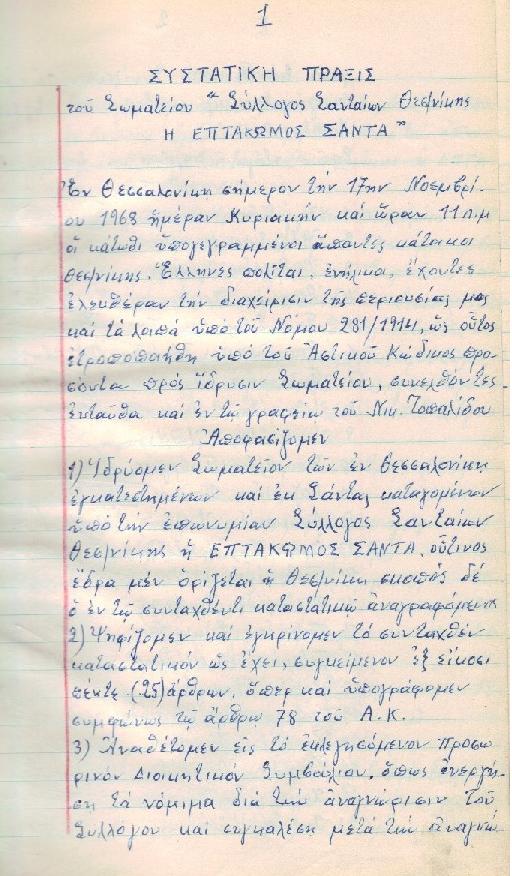 1
ΣΥΣΤΑΤΙΚΗ ΠΡΑΞΙΣ
τοῦ Σωματείου "Σύλλογος Σανταίων Θεσ/νίκης
Η ΕΠΤΑΚΩΜΟΣ ΣΑΝΤΑ"
Ἐν Θεσσαλονίκῃ σήμερον τὴν 17ην Νοεμβρί-
ου 1968 ἡμέραν Κυριακὴν καὶ ὥραν 11 π.μ
οἱ κάτωθι ὑπογεγραμμένοι ἅπαντες κάτοικοι
Θεσ/νίκης, Ἕλληνες πολῖται, ἐνήλικα, ἔχοντες
ἐλευθέραν τὴν διαχείρισιν τῆς περιουσίας μας
καὶ τὰ λοιπά ὑπὸ τοῦ Νόμου 281/1914, ὡς οὗτος
ἐτροποποιήθη ὑπὸ τοῦ Ἀστικοῦ Κώδικος προ-
σόντα πρὸς ἵδρυσιν Σωματείου, συνελθόντες
ἐνταῦθα καὶ ἐν τῷ γραφείῳ τοῦ Νικ. Τοπαλίδου
Ἀποφασίζομεν
1) Ἱδρύομεν Σωματεῖον τῶν ἐν Θεσσαλονίκῃ
ἐγκατεστημένων καὶ ἐκ Σάντας καταγομένων
ὑπὸ τὴν ἐπωνυμίαν Σύλλογος Σανταίων
Θεσ/νίκης ἡ ΕΠΤΑΚΩΜΟΣ ΣΑΝΤΑ, οὕτινος
ἕδρα μὲν ὁρίζεται ἡ Θεσ/νίκη σκοπὸς δὲ
ὁ ἐν τῷ συνταχθέντι καταστατικῷ ἀναγραφόμενος
2) Ψηφίζομεν καὶ ἐγκρίνομεν τὸ συνταχθὲν
καταστατικόν ὡς ἔχει, συγκείμενον ἐξ εἴκοσι
πέντε (25) ἄρθρων, ὅπερ καὶ ὑπογράφομεν
συμφώνως τῷ ἄρθρῳ 78 τοῦ Α.Κ.
3) Ἀναθέτομεν εἰς τὸ ἐκλεγησόμενον προσω-
ρινόν Διοικητικόν Συμβούλιον, ὅπως ἐνεργή-
σῃ τὰ νόμιμα διὰ τὴν ἀναγνώρισιν τοῦ
Συλλόγου καὶ συγκαλέσῃ μετὰ τὴν ἀναγνώ-